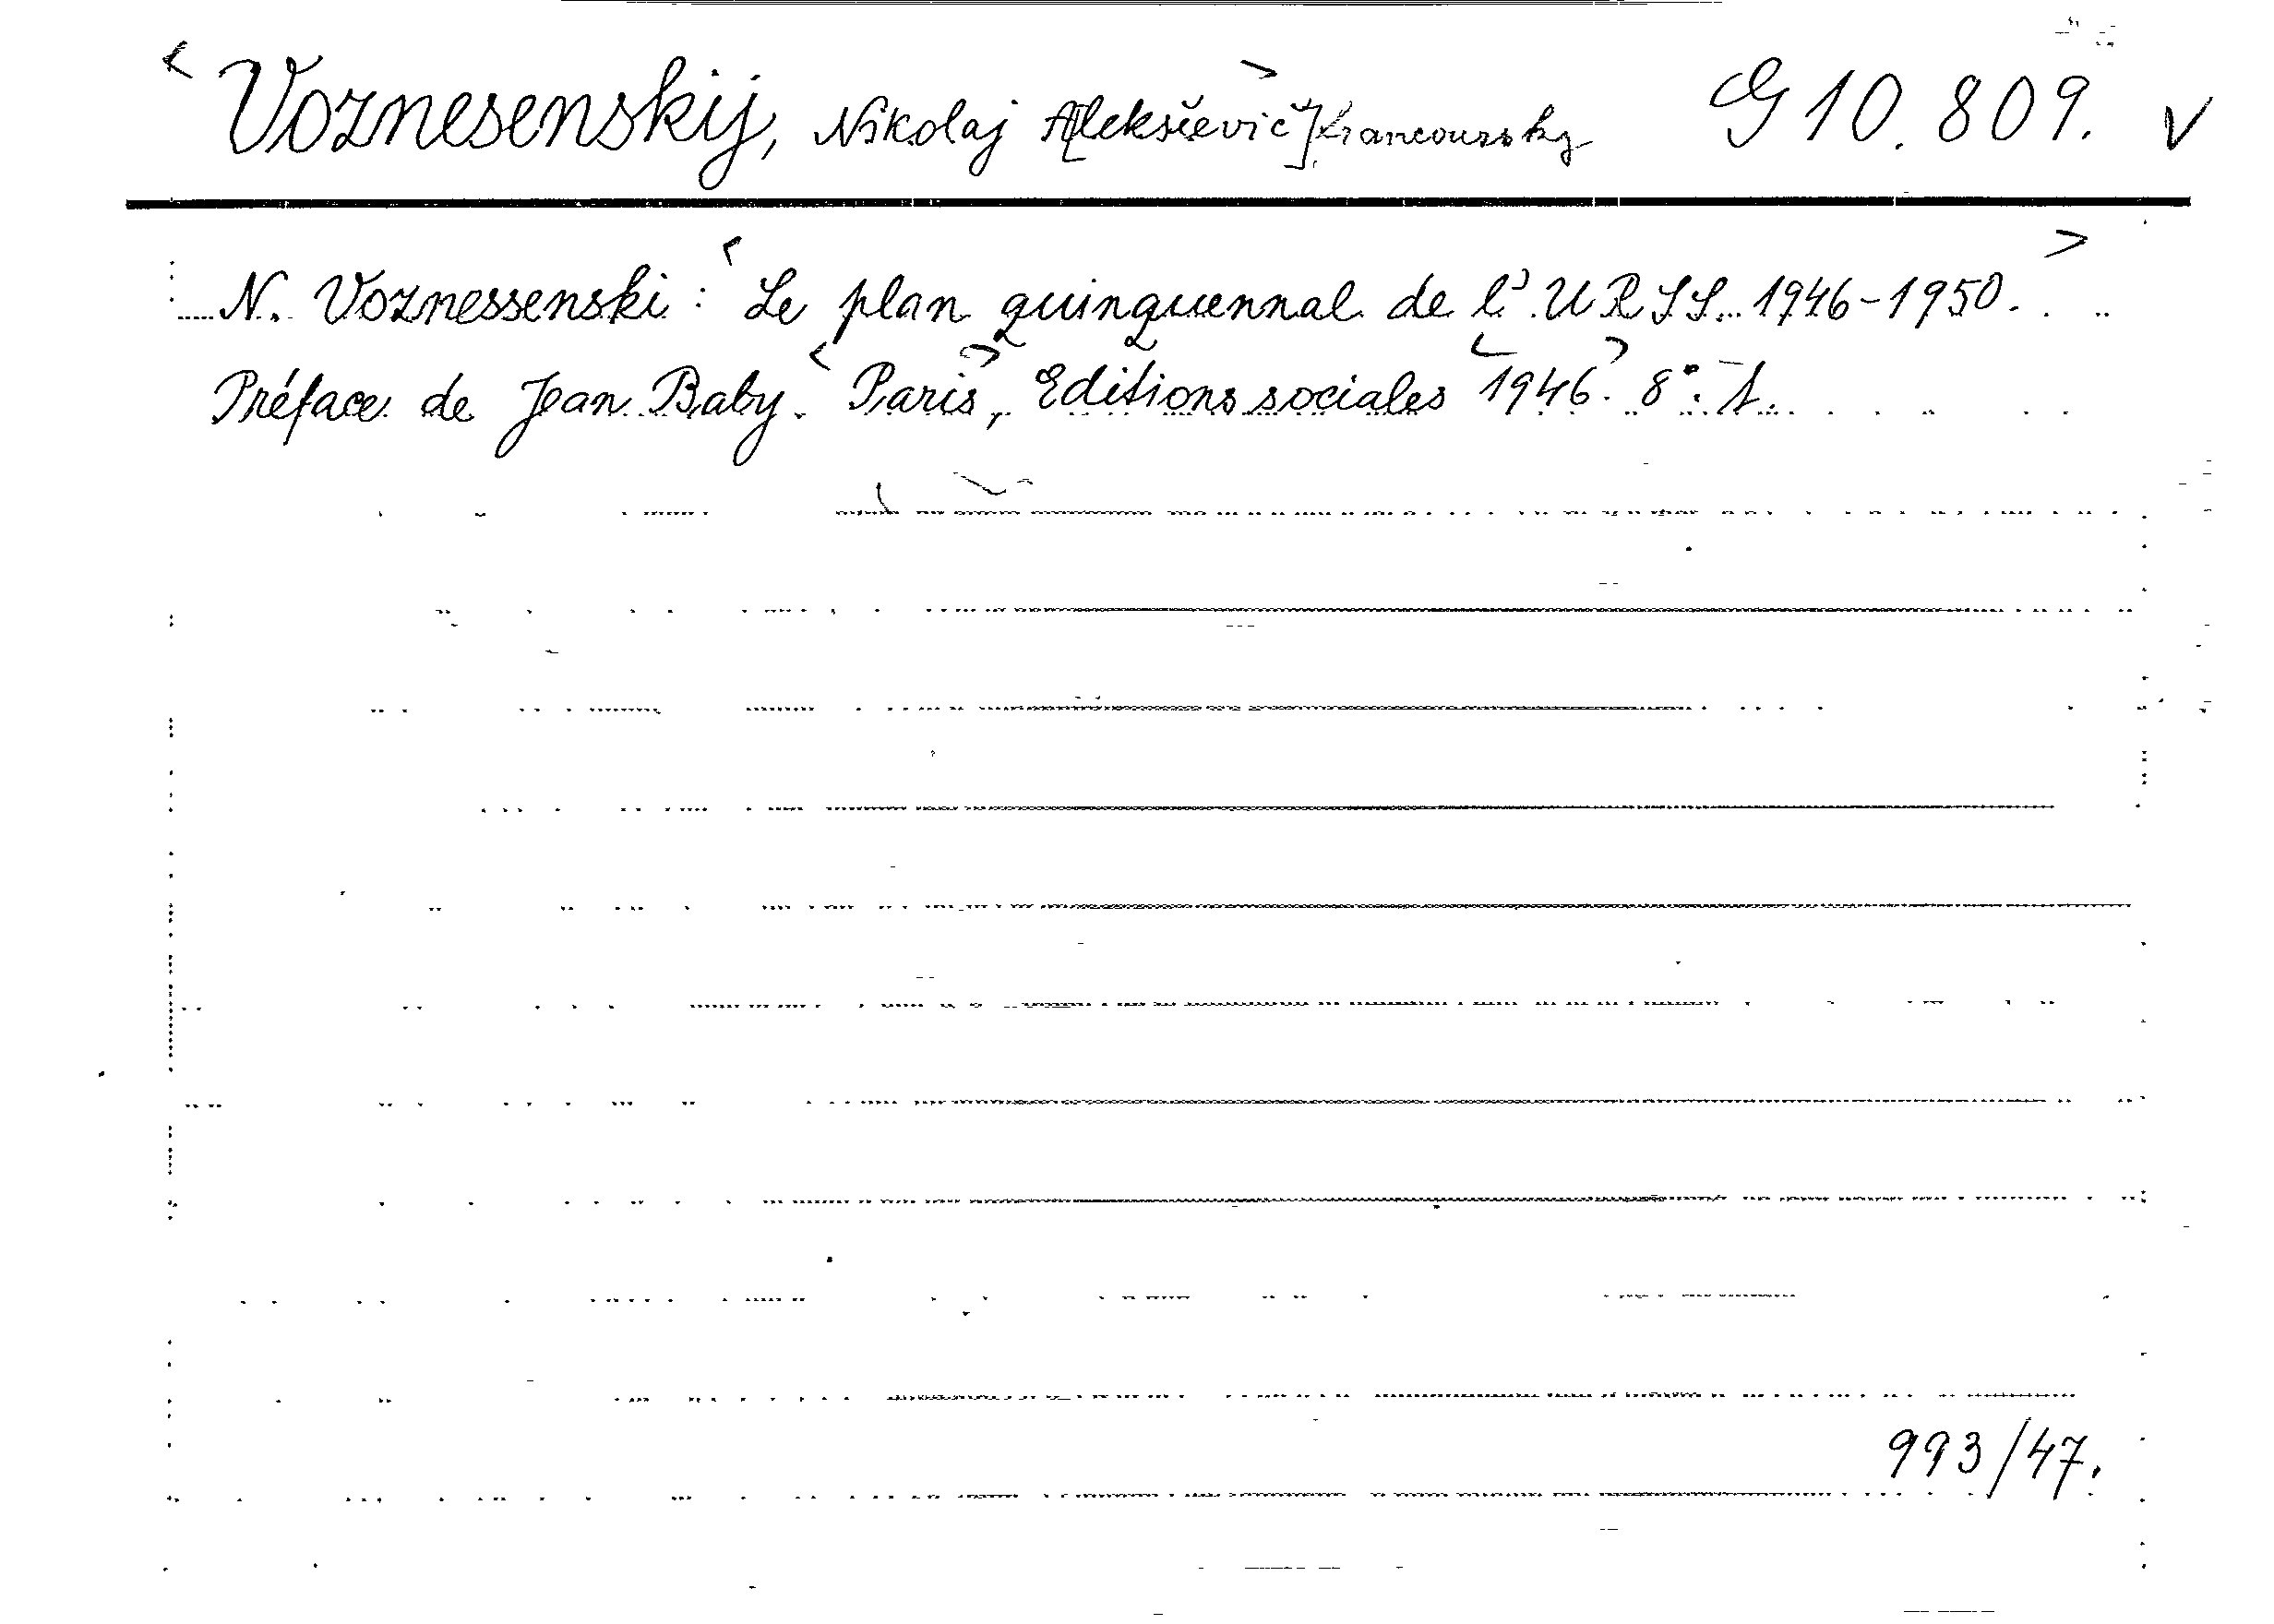 <Voznesenskij, Nikolaj A[lekseevič]> G 10.809. V
N. Voznessenski: <Le plan quinquennal de l'URSS. 1946-1950.>
Préface de Jean Baby. <Paris>, Editions sociales <1946>. 8°. 1.
993/47.